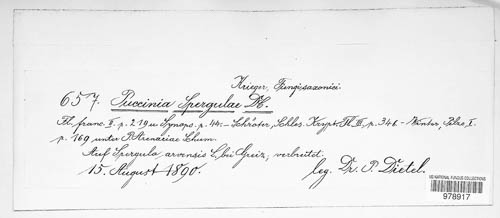 Krieger, Fungi saxonici.
657. Puccinia Spergulae DC.
Fl. franc. II p. 219 u. Synops. p. 44. – Schröter, Schles. Krypt. Fl. III, p. 346. – Winter, Pilze, I.
p. 169 unter P. Arenariae Schum.
Auf Spergula arvensis L. bei Greiz, verbreitet.
15. August 1890. leg. Dr. P. Dietel.
US NATIONAL FUNGUS COLLECTIONS
978917